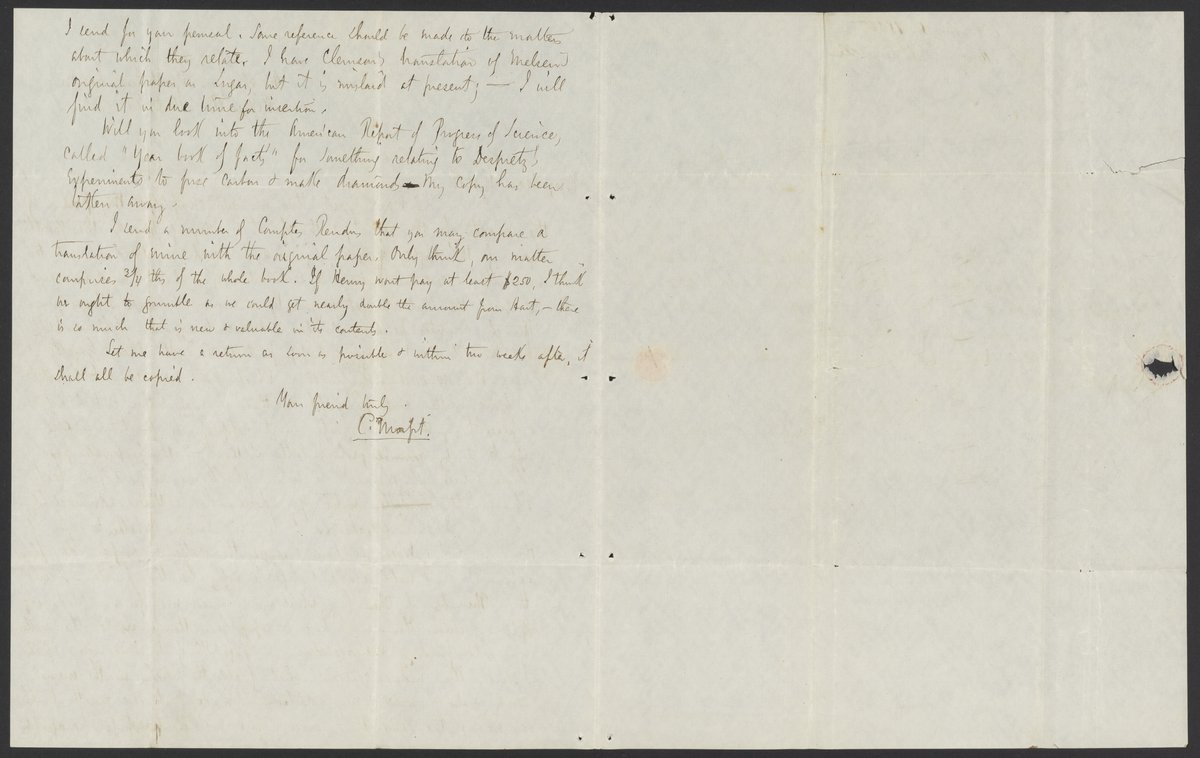 I send for your perusal. Some reference should be made to the matter
about which they relate. I have Clemson's translation of Melsens
original paper on Sugar, but it is mislaid at present; — I will
find it in due time for insertion.
Will you look into the American Report of Progress of Science,
called "Year book of facts" for something relating to Despretz'
Experiments to fuse carbon & make diamond — My copy has been
taken away.
I send a number of Comptes Rendus that you may compare a
translation of mine with the original paper. Only think, our matter
comprises 3/4 ths of the whole book. If Henry wont pay at least $250, I think
we ought to grumble as we could get nearly double the amount from Hart, — there
is so much that is new & valuable in its contents.
Let me have a return as soon as possible & within two weeks after, it
shall all be copied.
Your friend truly.
C. Morfit.